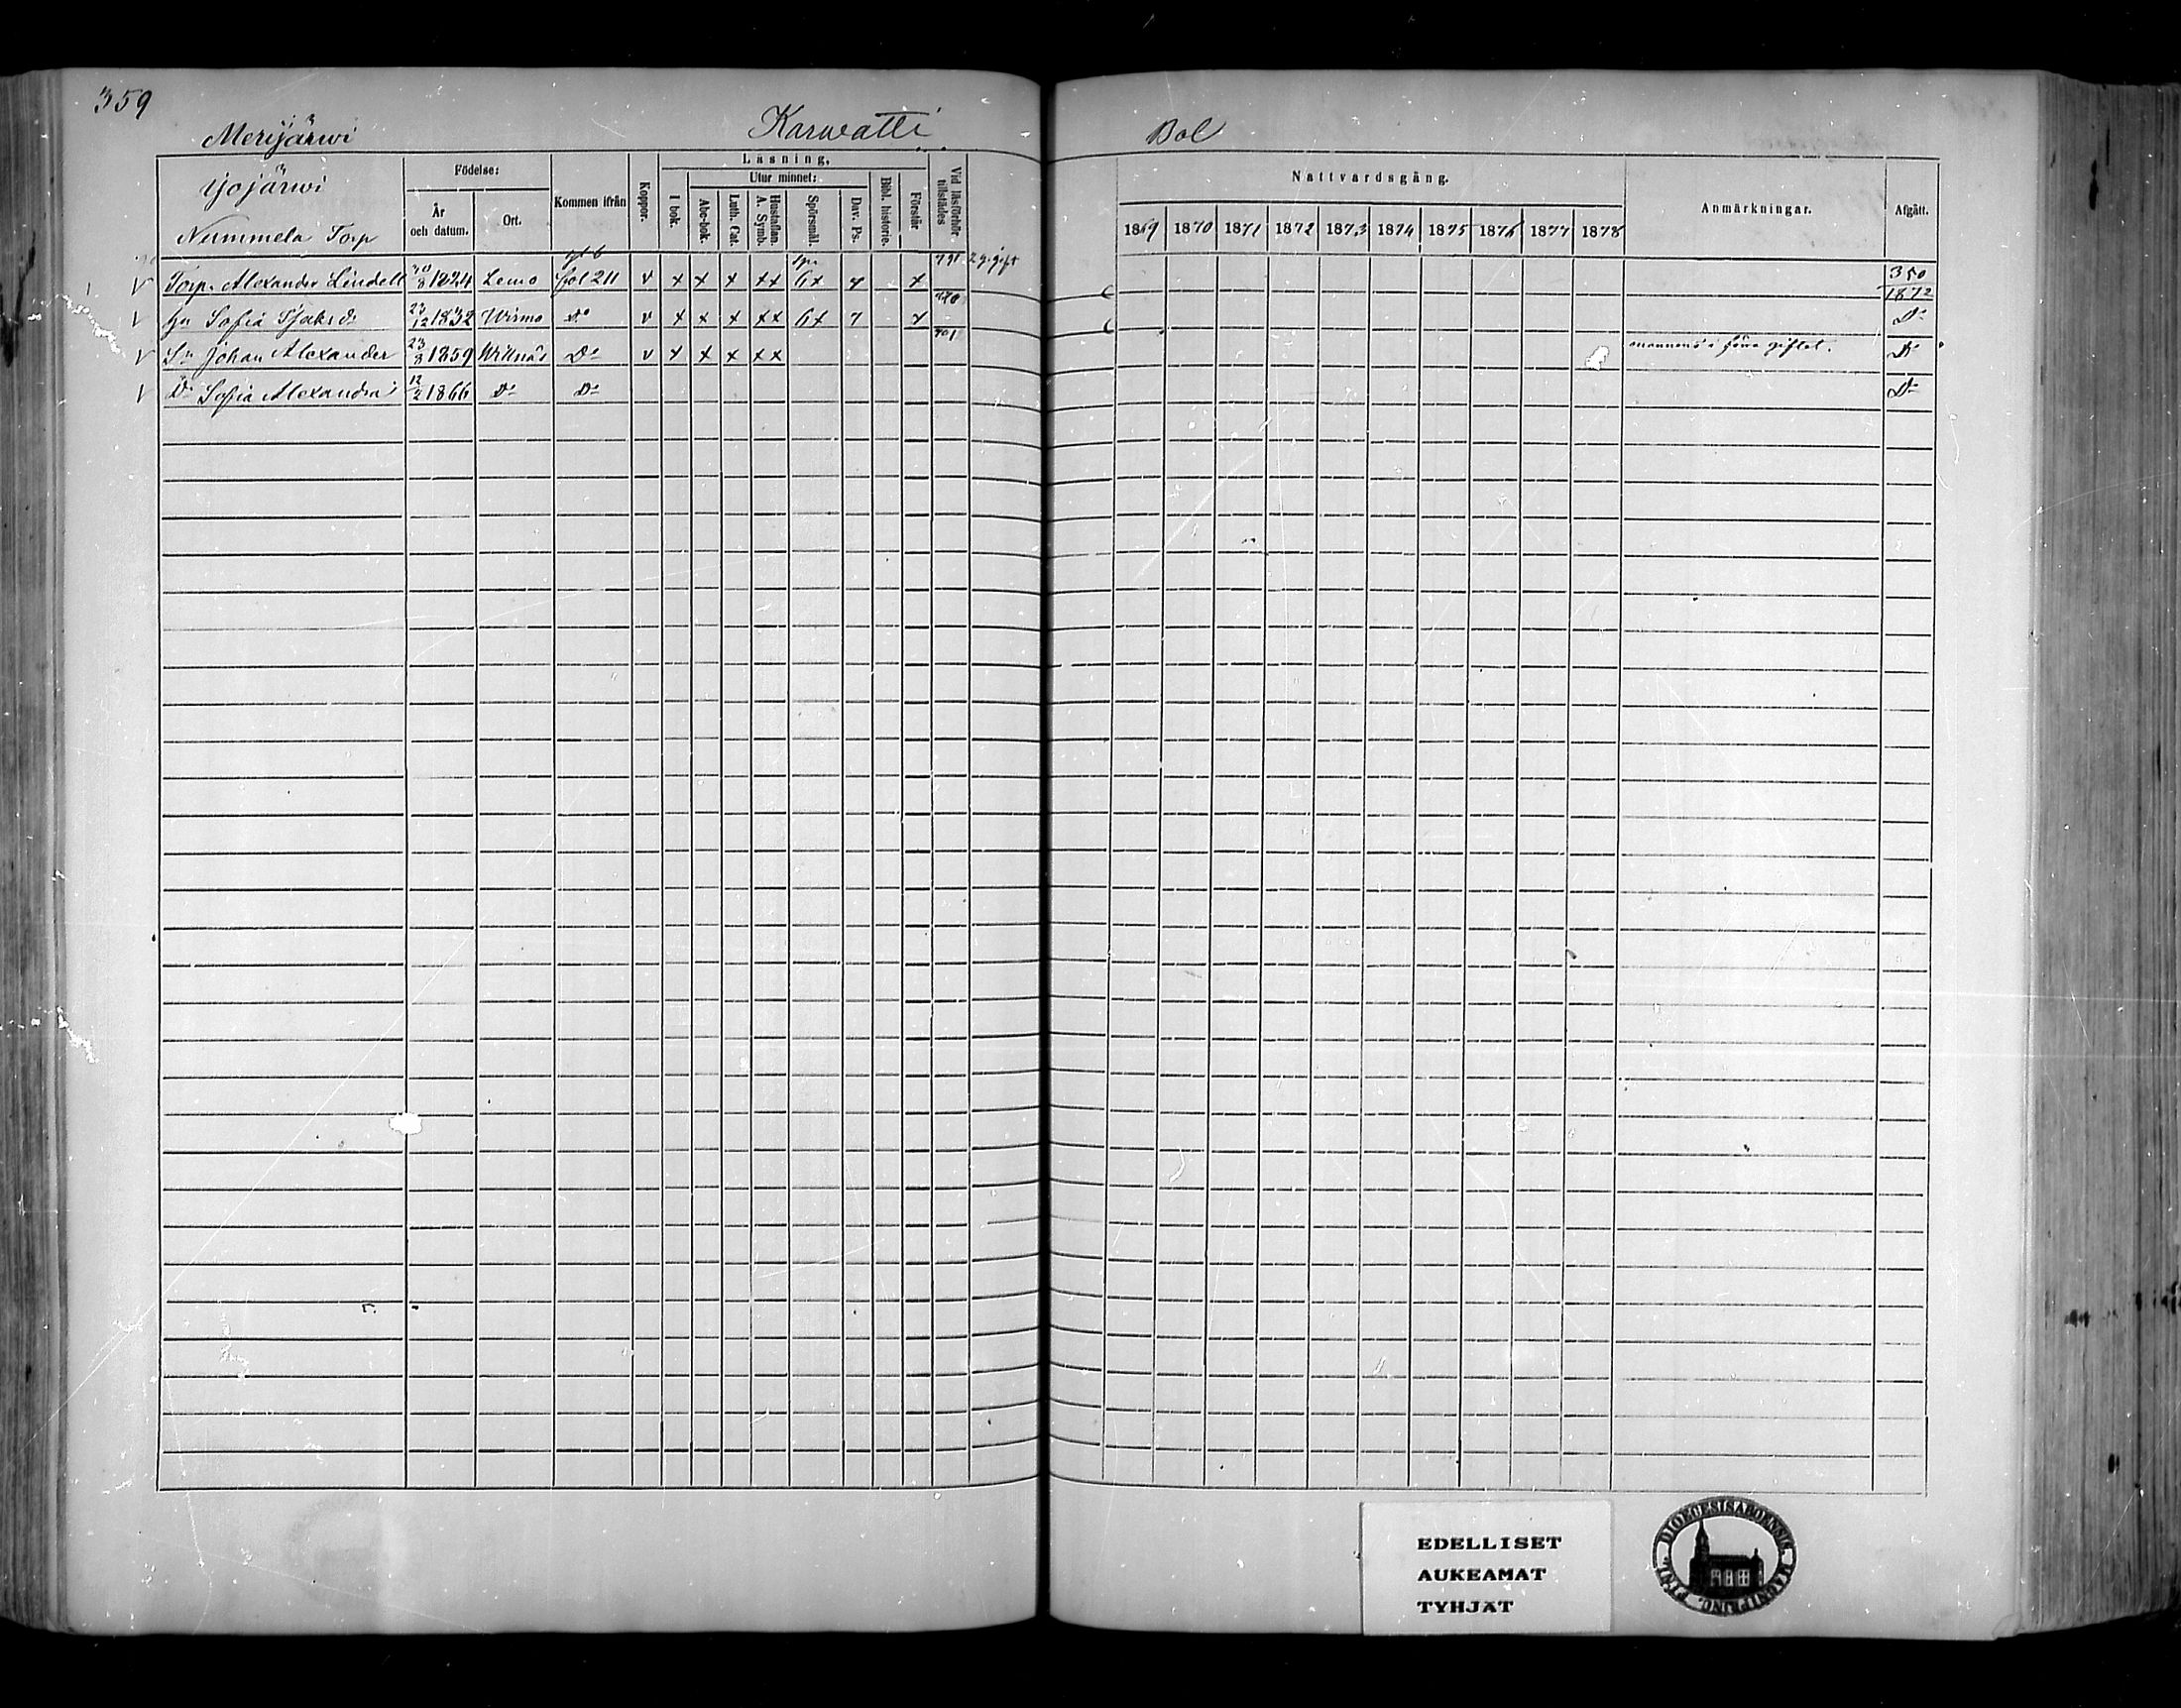 359
Merijärwi Karwatti Bol
Yojärwi
Nummela Torp
Födelse:
År och datum.
Ort.
Kommen ifrån
Koppor.
Läsning,
I bok.
Utur minnet:
Abc-bok.
Luth. Cat.
Hustaflan. A. Symb.
Spörsmål.
Dav. Ps.
Bibl. historie.
Förstår
Vid läsförhör tillstädes
Nattvardsgång.
1869 1870 1871 1872 1873 1874 1875 1876 1877 1878
Anmärkningar.
Afgått.
V Torp. Alexander Lindell 1824 Lemo fol 211 v x x x xx 6x x 2 g. gift 350 1872
V Hu Sofia 23/12 1832 Wirmo Do v x x x xx 6x Do
V Sn Johan Alexander 23/3 1859 Willnäs Do v x x x xx mannens i förra giftet. Do
V Dr Sofia Alexandra 12/2 1866 Do Do Do
EDELLISET
AUKEAMAT
TYHJÄT